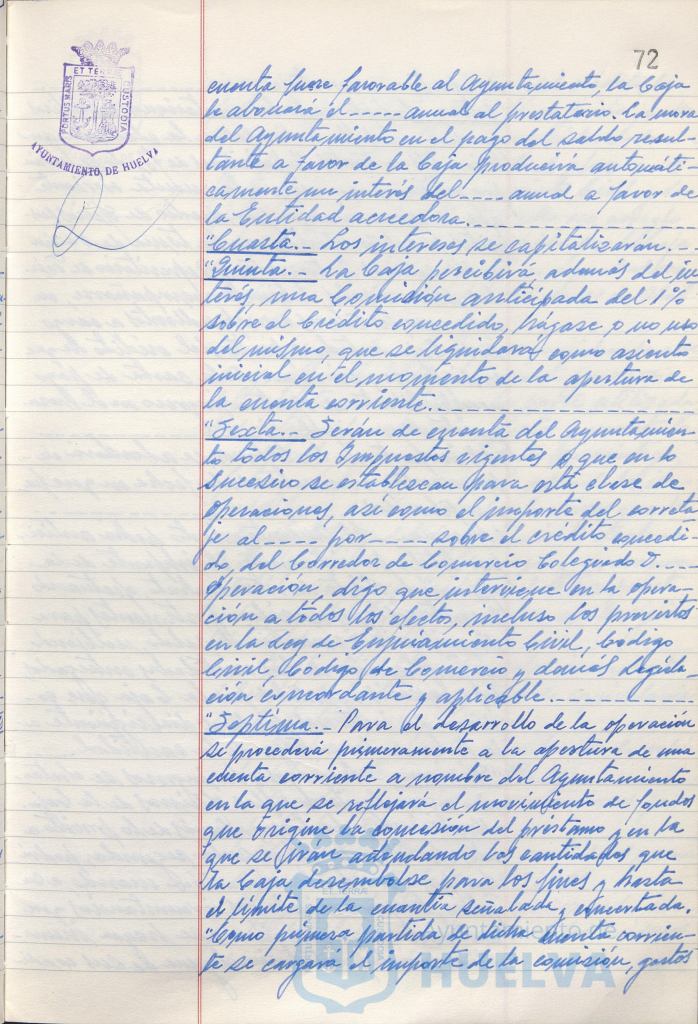 72
PORTUS MARIS ET TERRE CUSTODIA
AYUNTAMIENTO DE HUELVA
cuenta fuere favorable al Ayuntamiento, la Caja
le abonará el ----- anual al prestatario. La mora
del Ayuntamiento en el pago del saldo resul-
tante a favor de la Caja producirá automáti-
camente un interés del ----- anual a favor de
la Entidad acreedora.
"Cuarta.- Los intereses se capitalizarán.-
"Quinta.- La Caja percibirá, además del in-
terés, una Comisión anticipada del 1%
sobre el Crédito concedido, hágase o no uso
del mismo, que se liquidará como asiento
inicial en el momento de la apertura de
la cuenta corriente.
"Sexta.- Serán de cuenta del Ayuntamien-
to todos los Impuestos vigentes o que en lo
sucesivo se establezcan para esta clase de
operaciones, así como el importe del correta-
je al ---- por ----- sobre el crédito concedi-
do, del Corredor de Comercio Colegiado D. ----
operación, digo que interviene en la opera-
ción a todos los efectos, incluso los previstos
en la Ley de Enjuiciamiento Civil, Código
Civil, Código de Comercio y demás Legisla-
ción concordante y aplicable.
"Septima.- Para el desarrollo de la operación
se procederá primeramente a la apertura de una
cuenta corriente a nombre del Ayuntamiento
en la que se reflejará el movimiento de fondos
que origine la concesión del préstamo y en la
que se irán adeudando las cantidades que
la Caja desembolse para los fines y hasta
el límite de la cuantía señalada y concertada.
"Como primera partida de dicha cuenta corrien-
te se cargará el importe de la comisión, gastos
Ayuntamiento de
HUELVA